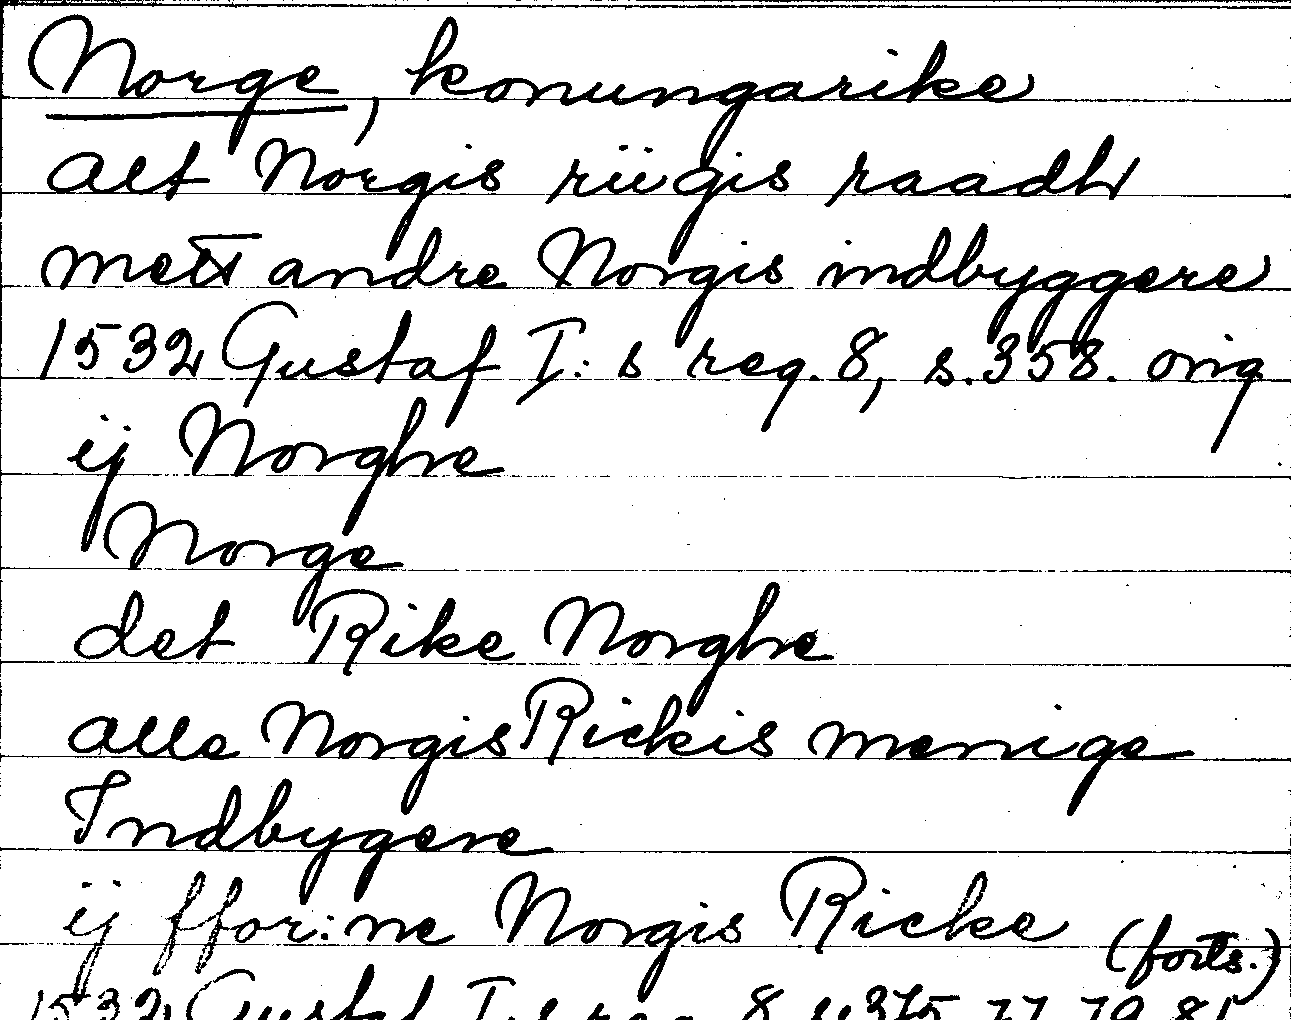 Norge, konungarike
alt Norgis riigis raadh
mett andre Norgis indbyggere
1532 Gustaf I:s reg. 8, s. 358. orig
ij Norghe
Norge
det Rike Norghe
alle Norgis Rickis menige
Indbygere
ij ffor:ne Norgis Ricke (forts.)
1532 Gustaf I:s reg. 8 s. 375, 77, 79, 81